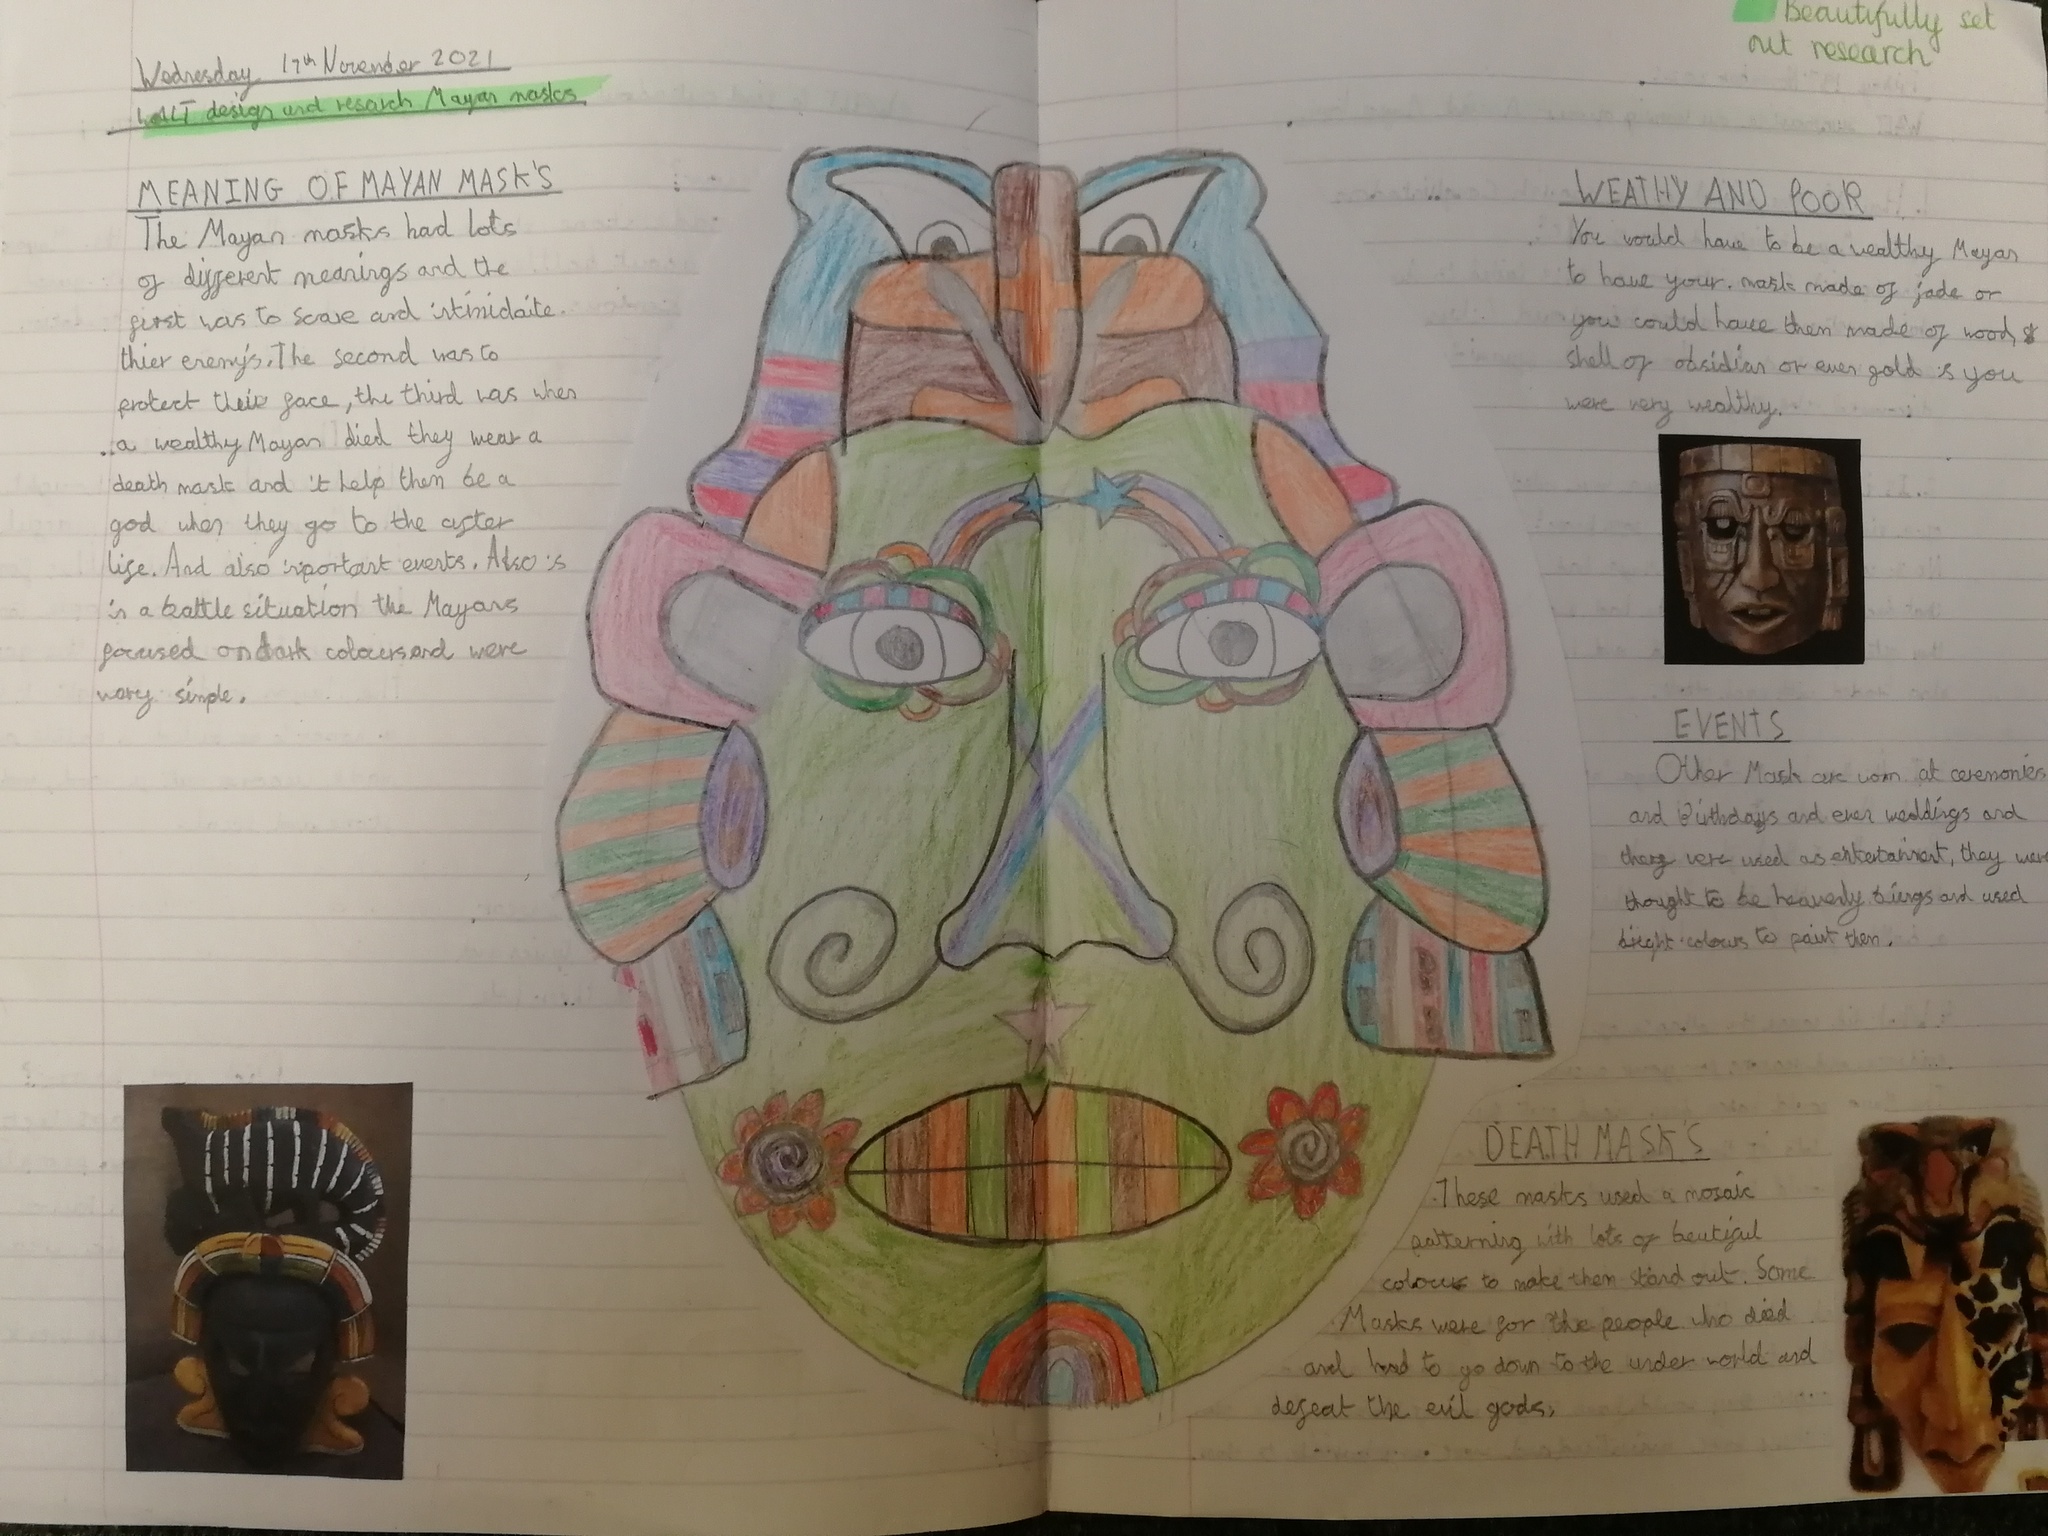 Wednesday 17th November 2021
WALT design and resarch Mayan masks
MEANING OF MAYAN MASK'S
The Mayan masks had lots
of different meanings and the
first was to scare and intimidaite
thier enemy's. The second was to
protect their face, the third was when
a wealthy Mayan died they wear a
death mask and it help them be a
god when they go to the after
life. And also inportant events. Also is
in a battle situation the Mayans
focused on dark colours and were
very simple.
Beautifully set
out research
WEATHY AND POOR
You would have to be a wealthy Mayan
to have your mask made of jade or
you could have them made of wood,
shell of obsidian or even gold is you
were very wealthy.
EVENTS
Other Mask are worn at ceremonies
and Birthdays and even weddings and
there were used as entertainment, they were
thought to be heavenly biengs and used
bright colours to paint them.
DEATH MASK'S
These masks used a mosaic
patterning with lots of beutiful
colours to make them stand out. Some
Masks were for the people who died
and had to go down to the under world and
defeat the evil gods.